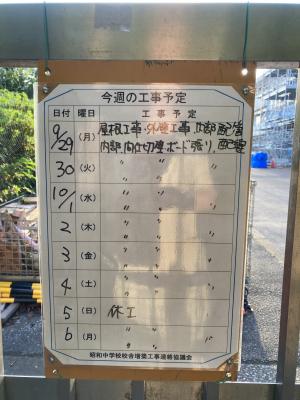 今週の工事予定
日付 曜日 工事予定
9/29 (月) 屋根工事 外壁工事 内部配管
内部間仕切壁ボード張り、配線
30 (火) 〃 〃 〃
〃 〃
10/1 (水) 〃 〃 〃
〃 〃
2 (木) 〃 〃 〃
〃 〃
3 (金) 〃 〃 〃
〃 〃
4 (土) 〃 〃 〃
〃 〃
5 (日) 休工
6 (月) 〃 〃 〃
〃 〃
昭和中学校校舎増築工事連絡協議会